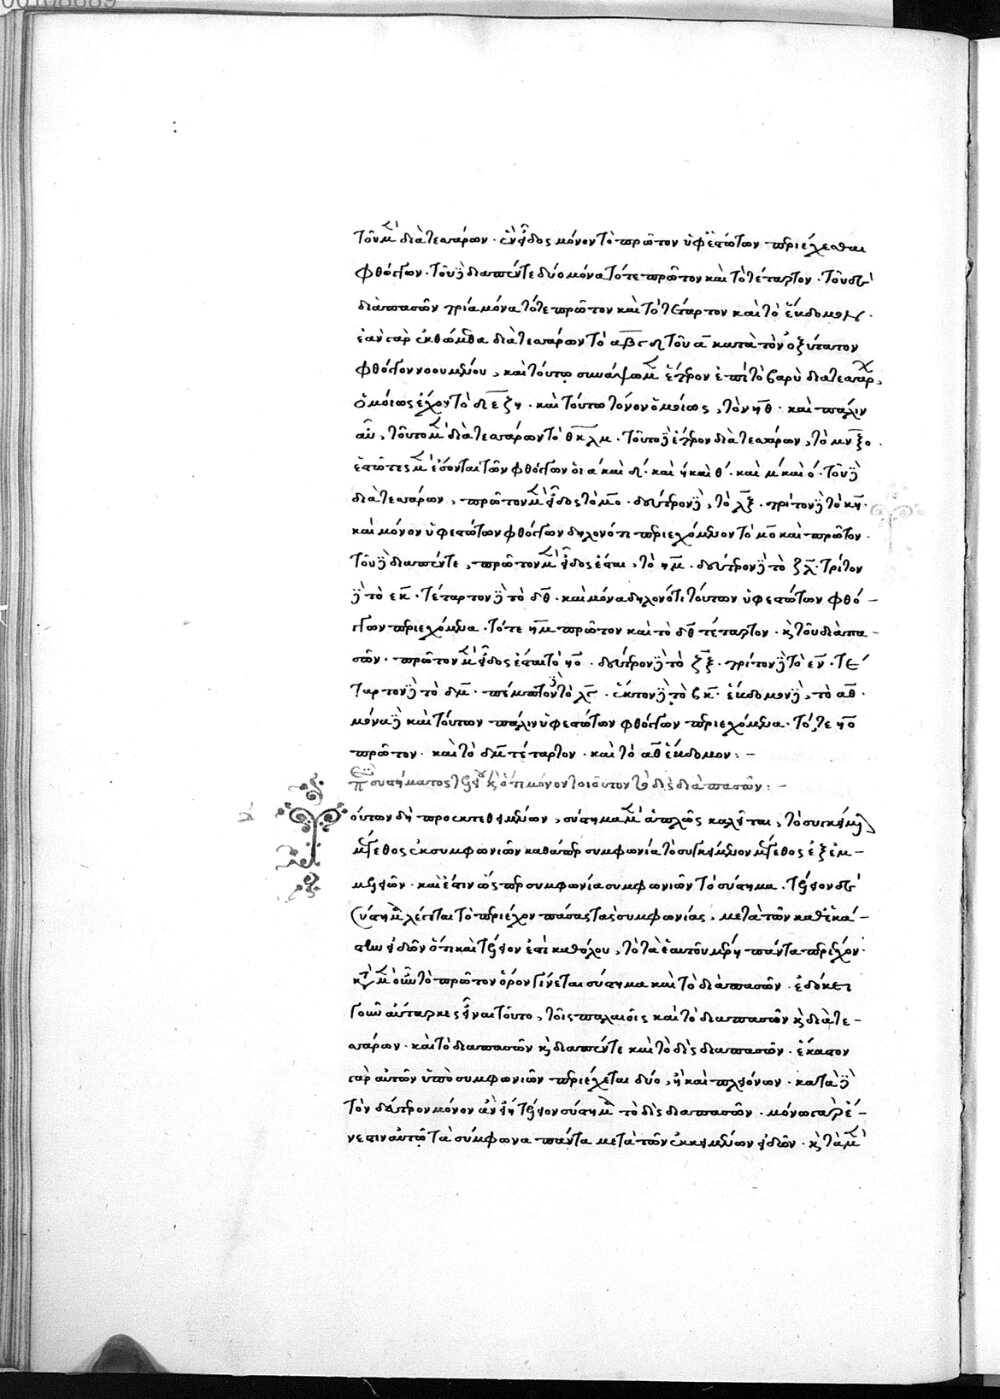 τοῦ μὲν διὰ τεσσάρων · ἓν εἶδος μόνον τὸ πρῶτον ὑφεστώτων περιέχεσθαι
φθόγγων · τοῦ δὲ διαπέντε δύο μόνα τό τε πρῶτον καὶ τὸ τέταρτον · τοῦ δὲ
διαπασῶν τρία μόνα τό τε πρῶτον καὶ τὸ τέταρτον καὶ τὸ ἕβδομον ·
ἐὰν γὰρ ἐκθώμεθα διὰ τεσσάρων τὸ αβγδ τοῦ α κατὰ τὸν ὀξύτατον
φθόγγον νοουμένου, καὶ τούτῳ συνάψωμεν ἕτερον ἐπὶ τὸ βαρὺ διὰ τεσσάρων,
ὁμοίως ἔχον τὸ δεζη · καὶ τούτῳ τόνον ὁμοίως, τὸν ηθ · καὶ πάλιν
αὖ, τούτῳ μὲν διὰ τεσσάρων τὸ θκλμ · τούτῳ δὲ ἕτερον διὰ τεσσάρων, τὸ μνξο ·
ἑστῶτες μὲν ἔσονται τῶν φθόγγων οἱ α καὶ δ · καὶ η καὶ θ · καὶ μ καὶ ο · τοῦ δὲ
διὰ τεσσάρων, πρῶτον μὲν εἶδος τὸ μο · δεύτερον δὲ, τὸ λξ · τρίτον δὲ τὸ κν ·
καὶ μόνον ὑφεστώτων φθόγγων δηλονότι περιεχόμενον τὸ μο καὶ πρῶτον ·
τοῦ δὲ διαπέντε, πρῶτον μὲν εἶδος ἔσται, τὸ ημ · δεύτερον δὲ τὸ ζλ · τρίτον
δὲ τὸ εκ · τέταρτον δὲ τὸ δθ · καὶ μόνα δηλονότι τούτων ὑφεστώτων φθό-
γγων περιεχόμενα · τό τε ημ πρῶτον καὶ τὸ δθ τέταρτον · κ τοῦ διαπα-
σῶν · πρῶτον μὲν εἶδος ἔσται τὸ ηο · δεύτερον δὲ τὸ ζξ · τρίτον δὲ τὸ εν · τέ
ταρτον δὲ τὸ δμ · πέμπτον δὲ τὸ γλ · ἕκτον δὲ τὸ βκ · ἕβδομον δὲ, τὸ αθ ·
μόνα δὲ καὶ τούτων πάλιν ὑφεστώτων φθόγγων περιεχόμενα · τό τε ηο
πρῶτον · καὶ τὸ δμ τέταρτον · καὶ τὸ αθ ἕβδομον :-
Περὶ συστήματος τελείου κ ὅτι μόνον τοιοῦτον τὸ δὶς διαπασῶν :-
ούτων δὴ προεκτεθειμένων, σύστημα μὲν ἁπλῶς καλεῖται, τὸ συγκείμενον
μέγεθος ἐκ συμφωνιῶν καθάπερ συμφωνία τὸ συγκείμενον μέγεθος ἐξ ἐμ-
μελειῶν · καὶ ἔστιν ὥσπερ συμφωνία συμφωνιῶν τὸ σύστημα · τέλειον δὲ
σύστημα λέγεται τὸ περιέχον πάσας τὰς συμφωνίας, μετὰ τῶν καθ' ἑκά-
στην εἰδῶν ὅτι καὶ τέλειόν ἐστι καθόλου, τὸ τὰ ἑαυτοῦ μέρη πάντα περιέχον ·
κατὰ μὲν οὖν τὸ πρῶτον ὅρον γίνεται σύστημα καὶ τὸ διαπασῶν · ἐδόκει
γοῦν αὔταρκες εἶναι τοῦτο, τοῖς παλαιοῖς καὶ τὸ διαπασῶν κ διὰ τε-
σσάρων · καὶ τὸ διαπασῶν κ διαπέντε καὶ τὸ δὶς διαπασῶν · ἕκαστον
γὰρ αὐτῶν ὑπὸ συμφωνιῶν περιέχεται δύο, ἢ καὶ πλειόνων · κατὰ δὲ
τὸν δεύτερον μόνον ἂν εἴη τέλειον σύστημα τὸ δὶς διαπασῶν · μόνῳ γὰρ ἔ-
νεστιν αὐτῷ τὰ σύμφωνα πάντα μετὰ τῶν ἐκκειμένων εἰδῶν · κ τὰ μὲν